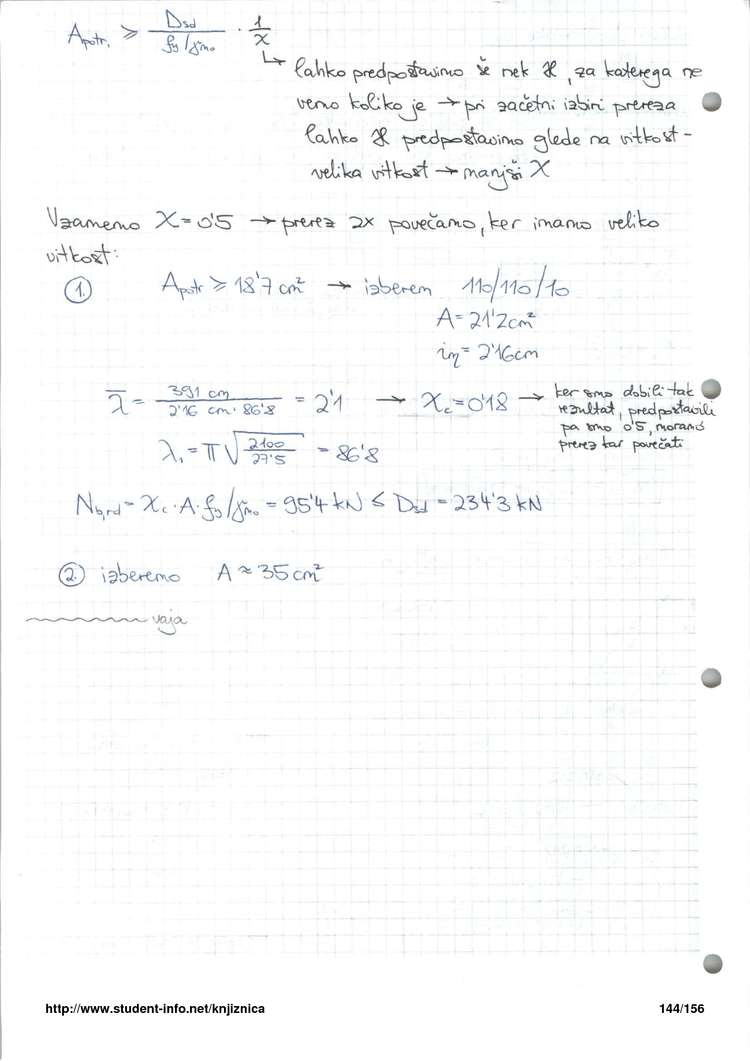 A potr. ≥ Dsd / (fy/γm0) · 1/χ
↳ lahko predpostavimo še nek χ, za katerega ne
vemo koliko je → pri začetni izbiri prereza
lahko χ predpostavimo glede na vitkost -
velika vitkost → manjši χ
Vzamemo χ = 0'5 → prerez 2x povečamo, ker imamo veliko
vitkost:
1. Apotr ≥ 18'7 cm² → izberem 110/110/10
A = 21'2 cm²
iη = 2'16 cm
λ̄ = 391 cm / (2'16 cm · 86'8) = 2'1 → χc = 0'18 → ker smo dobili tak
rezultat, predpostavili
pa smo 0'5, moramo
prerez kar povečati
λ₁ = π √(2100 / 27'5) = 86'8
Nb,rd = χc · A · fy/γm0 = 95'4 kN ≤ Dsd = 234'3 kN
2. izberemo A ≈ 35 cm²
vaja
http://www.student-info.net/knjiznica 144/156